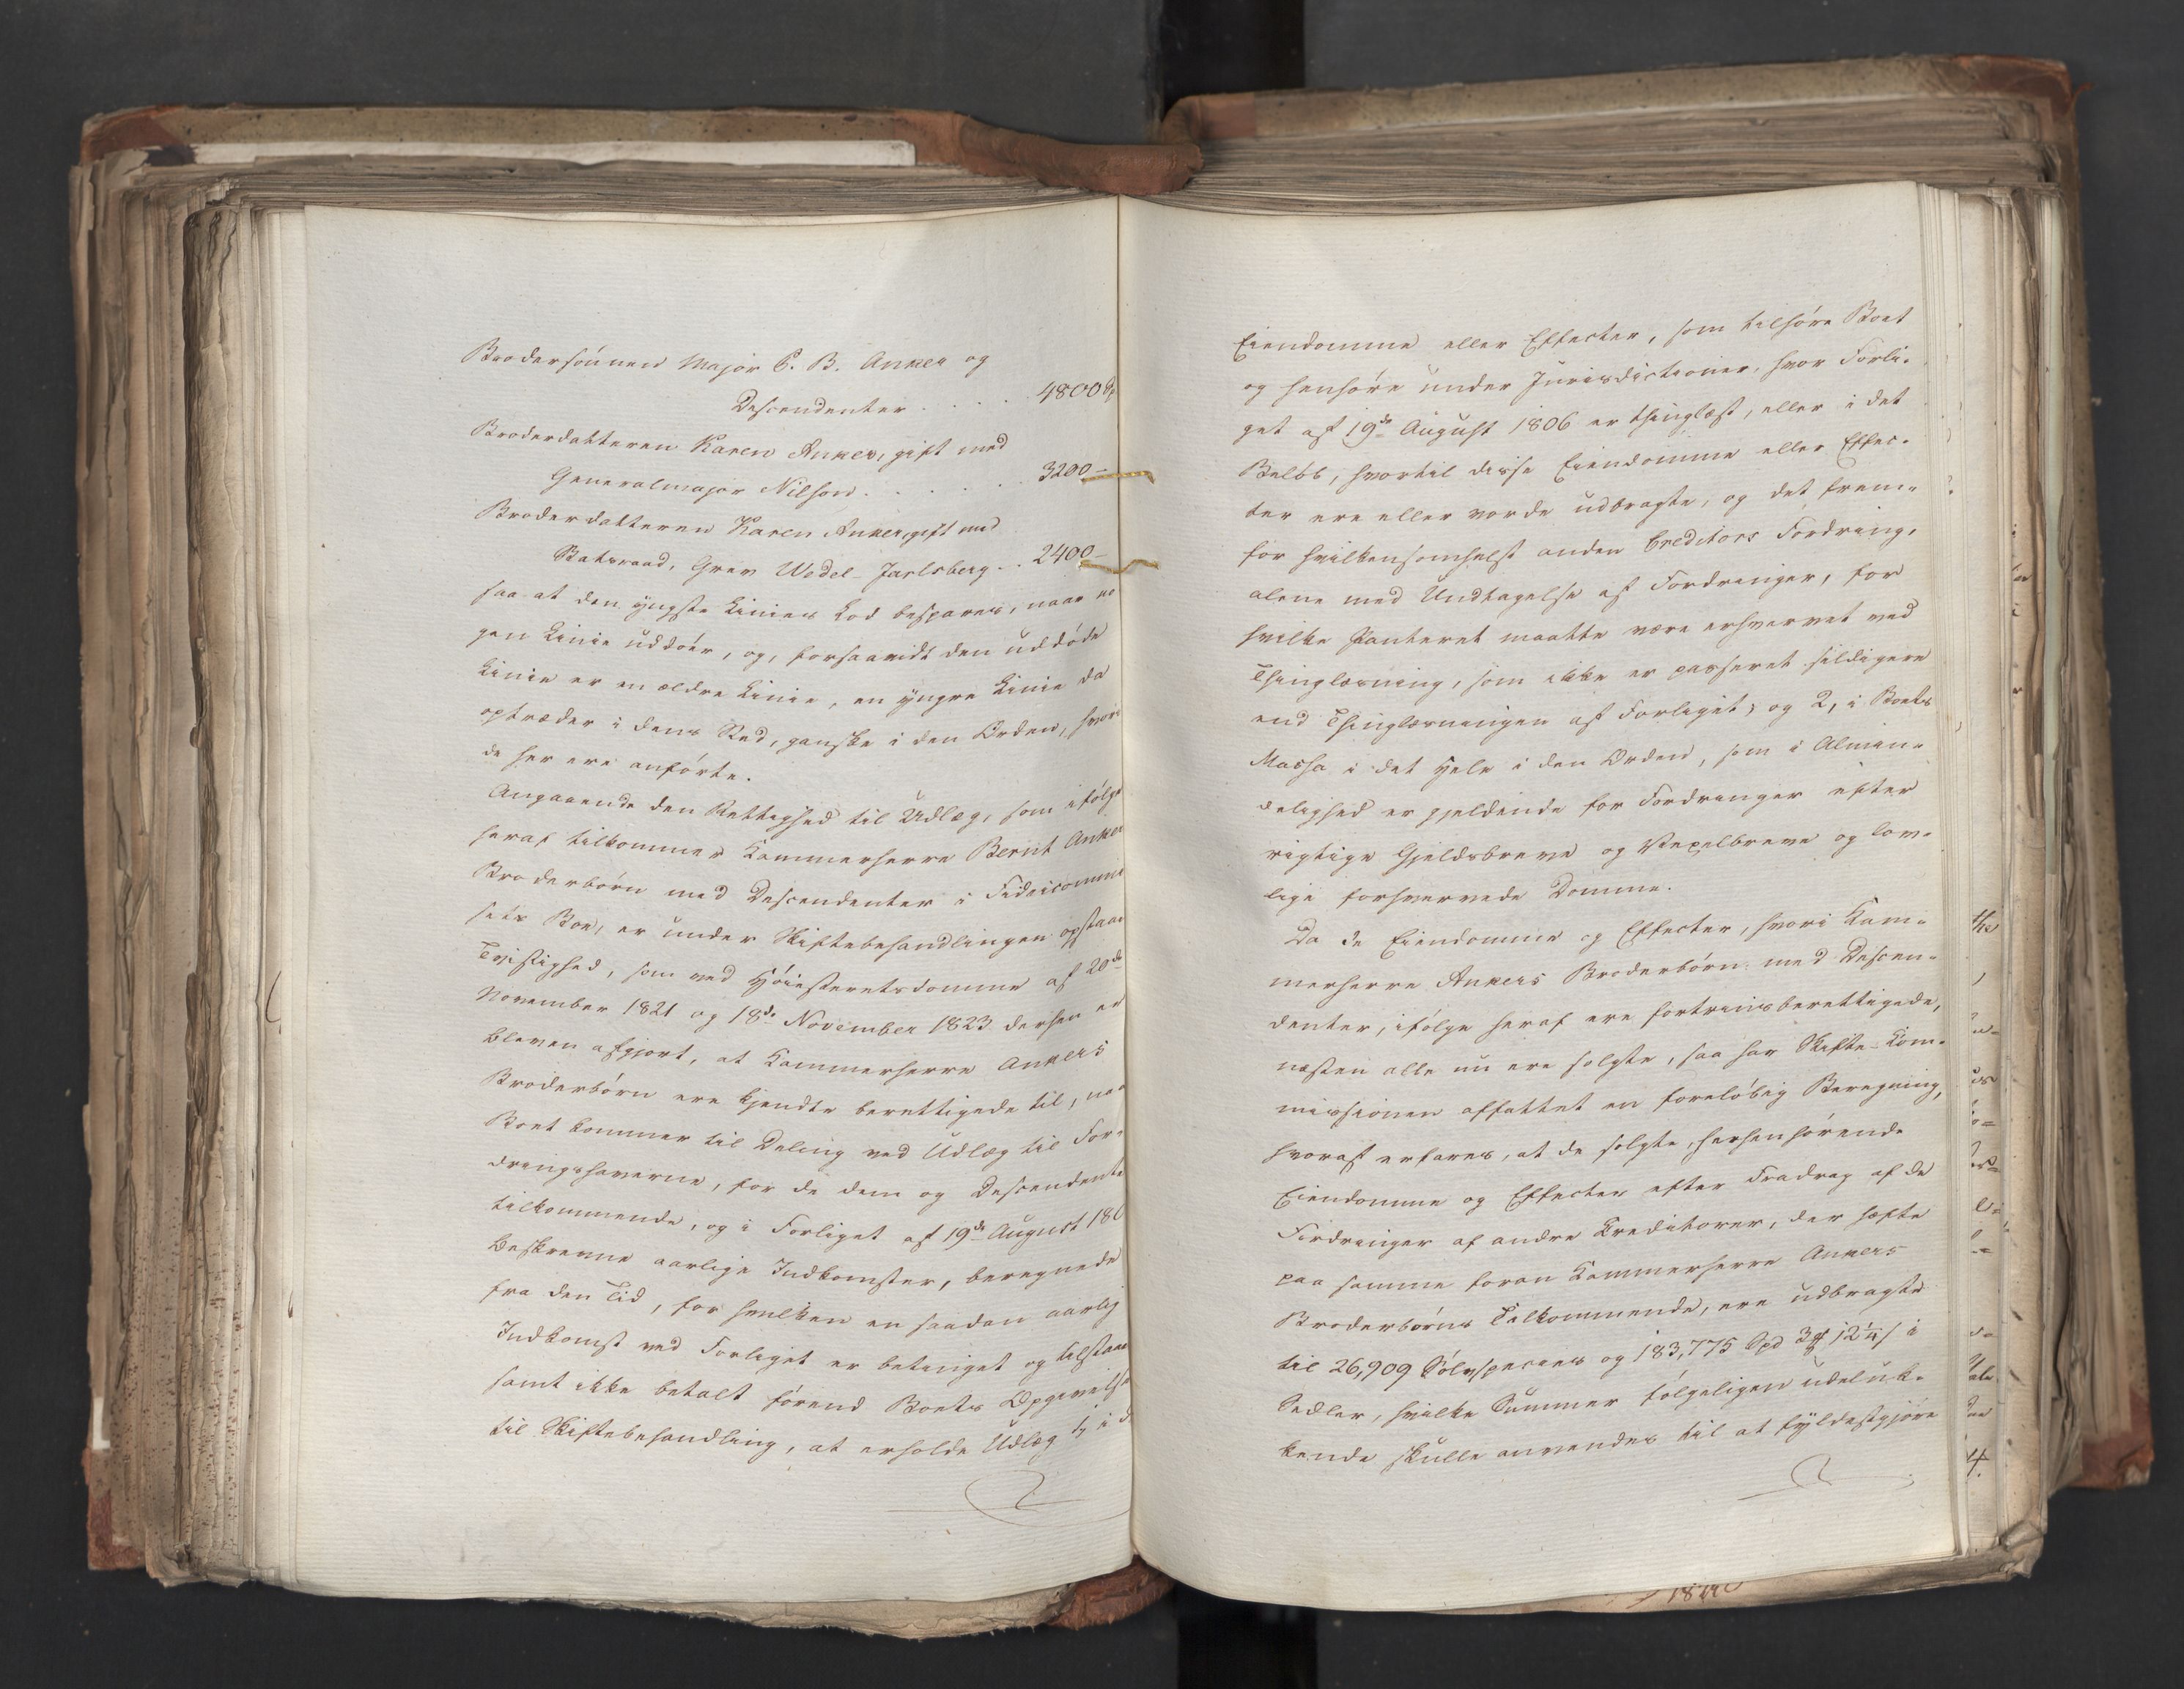 Brodersønnen Major P. B. Anker og
Descendenter . . . . 4800 
Broderdatteren Karen Anker, gift med
Generalmajor Nilson . . . . . . 3200 –
Broderdatteren Karen Anker, gift med
Statsraad, Grev Wedel-Jarlsberg . . 2400 –
saa at den yngste Linies Lod besparer, naar no
gen Linie uddøer, og, forsaavidt den uddøde
Linie er en ældre Linie, en yngre Linie da
optræder i dens Sted, ganske i den Orden, hvori
de her ere anførte.
Angaaende den Rettighed til Udlæg, som ifølge
heraf tilkommer Kammerherre Bernt Anker
Broderbørn med Descendenter i Fideicommi
sets Boe, er under Skiftebehandlingen opstaae
Tvistighed, som ved Høiesteretsdomme af 20de
November 1821 og 18de November 1823 derhen er
bleven afgjort, at Kammerherre Ankers
Broderbørn ere kjendte berettigede til, naa
Boet kommer til Deling ved Udlæg til For-
dringshaverne, for de dem og Descendente
tilkommende, og i Forliget af 19de August 180
beskrevne aarlige Indkomster, beregnede
fra den Tid, for hvilken en saadan aarlig
Indkomst ved Forliget er betinget og tilstaae
samt ikke betalt førend Boets Opgivelse
til Skiftebehandling, at erholde Udlæg 1, i d
Eiendomme eller Effecter, som tilhøre Boet
og henhøre under Jurisdictioner, hvor Forli-
get af 19de August 1806 er thinglæst, eller i det
Beløb, hvortil disse Eiendomme eller Effec-
ter ere eller vorde udbragte, og det frem-
for hvilkensomhelst anden Creditors Fordring,
alene med Undtagelse af Fordringer, for
hvilke Panteret maatte være erhvervet ved
Thinglæsning, som ikke er passeret sildigere
end Thinglæsningen af Forliget; og 2, i Boets
Massa i det Hele i den Orden, som i Almin-
delighed er gjeldende for Fordringer efter
rigtige Gjeldsbreve og Vexelbreve og lov-
lige forhvervede Domme.
Da de Eiendomme og Effecter, hvori Kam-
merherre Ankers Broderbørn med Descen-
denter, ifølge heraf ere fortrinsberettigede,
næsten alle nu ere solgte, saa har Skifte-Kom-
missionen affattet en foreløbig Beregning,
hvoraf erfares, at de solgte, herhen hørende
Eiendomme og Effecter efter Fradrag af de
Fordringer af andre Kreditorer, der hæfte
paa samme foran Kammerherre Ankers
Broderbørns Tilkommende, ere udbragte
til 26,909 Sølvspecies og 183,775 Spd 3 12¼ s i
Sedler, hvilke Summer følgeligen udeluk-
kende skulle anvendes til at fyldestgjøre